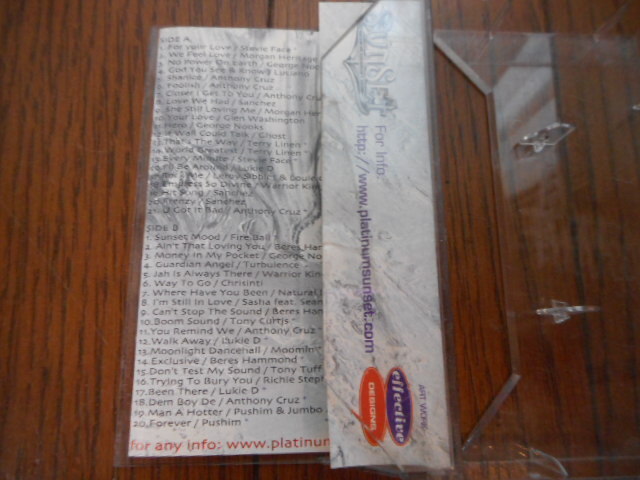 SIDE A
1. For your Love / Stevie Face *
2. We Feel Love / Morgan Heritage
3. No Power On Earth / George Noo
4. God You See & Know / Luciano
5. Shanice / Anthony Cruz
6. Foolish / Anthony Cruz
7. Closer I Get To You / Anthony Cru
8. Love We Had / Sanchez
9. She Still Loving Me / Morgan Her
10. Your Love / Glen Washington
11. Hero / George Nooks
12. If Wall Could Talk / Ghost
13. That's The Way / Terry Linen *
14. World Greatest / Terry Linen *
15. Every Minute / Stevie Face *
16. I'll Be Around / Lukie D
17. / Leroy Sibbles &
18. Empress So Divine / Warrior Kin
19. Hit Song / Sanchez
20. Frenzy / Sanchez
21. U Got It Bad / Anthony Cruz *
SIDE B
1. Sunset Mood / Fire Ball *
2. Ain't That Loving You / Beres Ham
3. Money In My Pocket / George No
4. Guardian Angel / Turbulence
5. Jah Is Always There / Warrior Kin
6. Way To Go / Chrisinti
7. Where Have You Been / Natural
8. I'm Still In Love / Sasha feat. Sean
9. Can't Stop The Sound / Beres Ham
10. Boom Sound / Tony Curtis *
11. You Remind We / Anthony Cruz *
12. Walk Away / Lukie D *
13. Moonlight Dancehall / Moomin *
14. Exclusive / Beres Hammond *
15. Don't Test My Sound / Tony Tuff
16. Trying To Bury You / Richie Steph
17. Been There / Lukie D *
18. Dem Boy De / Anthony Cruz *
19. Man A Hotter / Pushim & Jumbo
20. Forever / Pushim *
for any info: www.platinum
SunSet
For Info:
http://www.platinumsunset.com
ART WORK:
effective
DESIGNS